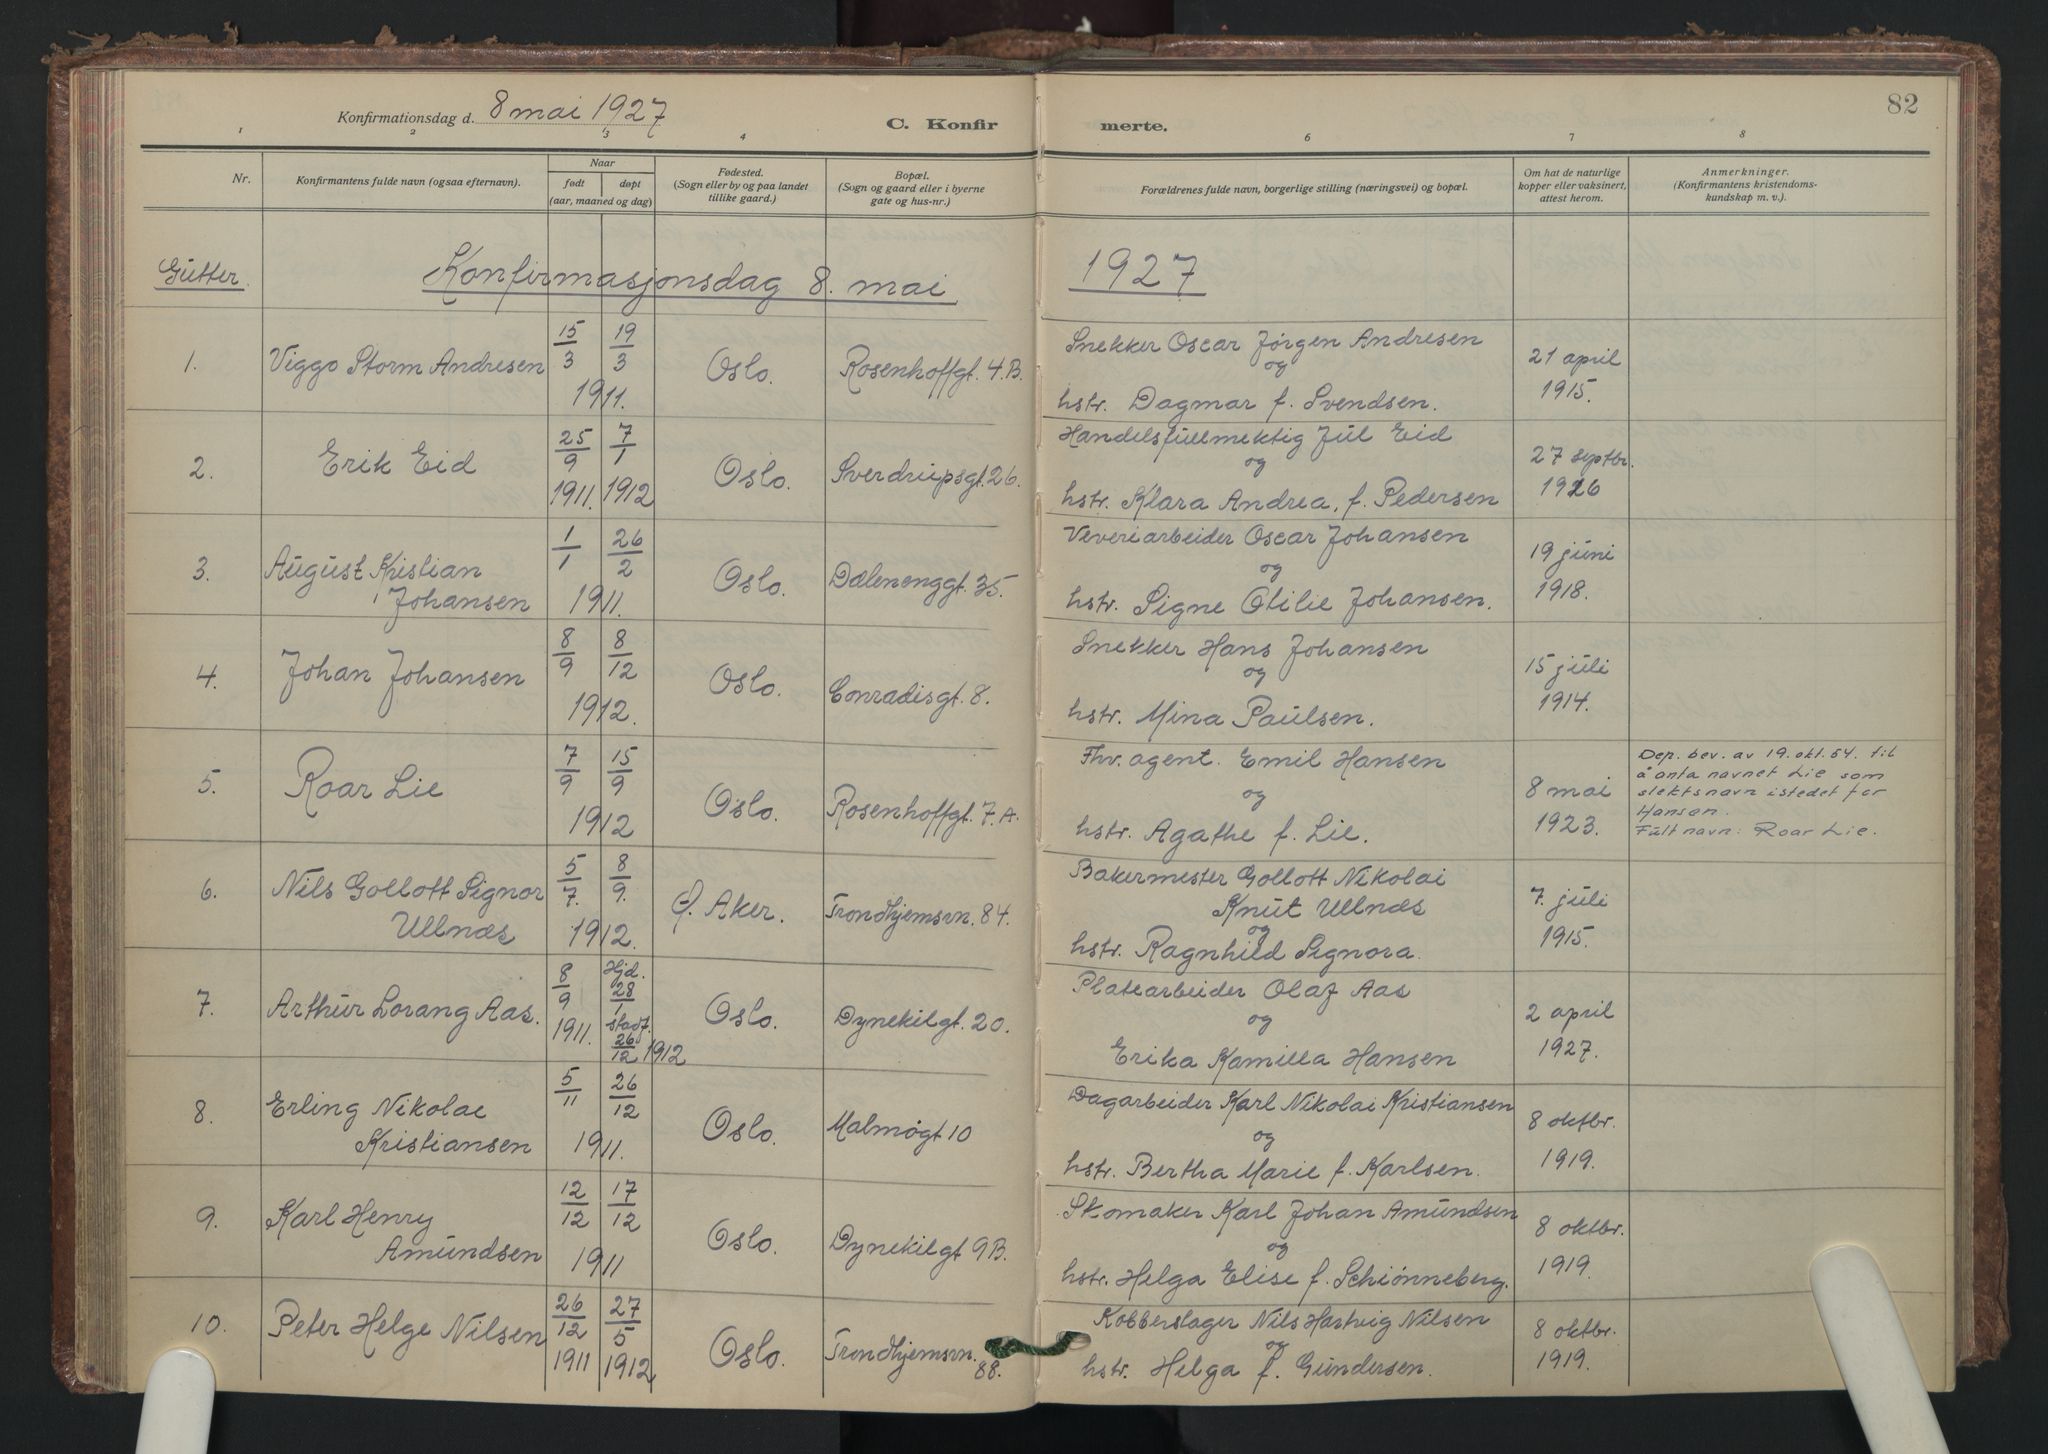 82
Konfirmationsdag d. 8 mai 1927
C. Konfir merte.
1 2 3 4 6 7 8
Nr.
Konfirmantens fulde navn (ogsaa efternavn).
Naar
født døpt
(aar, maaned og dag)
Fødested.
(Sogn eller by og paa landet
tillike gaard.)
Bopæl.
(Sogn og gaard eller i byerne
gate og hus-nr.)
Forældrenes fulde navn, borgerlige stilling (næringsvei) og bopæl.
Om hat de naturlige
kopper eller vaksinert,
attest herom.
Anmerkninger.
(Konfirmantens kristendoms-
kundskap m. v.).
Gutter. Konfirmasjonsdag 8. mai 1927
1. Viggo Storm Andresen 15/3 19/3 1911. Oslo. Rosenhoffgt. 4.B.
Snekker Oscar Jørgen Andresen
og
hstr. Dagmar f. Svendsen.
21 april
1915.
2. Erik Eid 25/9 1911. 7/1 1912 Oslo. Sverdrupsgt. 26.
Handelsfullmektig Jul Eid
og
hstr. Klara Andrea, f. Pedersen
27 septbr.
1926
3. August Kristian
Johansen 1/1 26/2 1911. Oslo. Dælenenggt. 35.
Veveriarbeider Oscar Johansen
og
hstr. Signe Otilie Johansen.
19 juni
1918.
4. Johan Johansen 8/9 8/12 1912. Oslo. Conradisgt. 8.
Snekker Hans Johansen
og
hstr. Mina Paulsen.
15 juli
1914.
5. Roar Lie 7/9 15/9 1912 Oslo. Rosenhoffgt. 7.A.
Fhv. agent. Emil Hansen
og
hstr. Agathe f. Lie.
8 mai
1923.
Dep. bev. av 19. okt. 54. til
å anta navnet Lie som
slektsnavn istedet for
Hansen.
Fult navn: Roar Lie.
6. Nils Gollott Signor
Ullnæs 5/7. 8/9. 1912. Ø. Aker. Trondhjemsvn. 84.
Bakermester Gollott Nikolai
Knut Ullnæs
og
hstr. Ragnhild Signora.
7. juli
1915.
7. Arthur Lorang Aas. 8/9 1911. Hjd. 28/1 stadf. 26/12 1912 Oslo. Dynekilgt. 20.
Platearbeider Olaf Aas
og
Erika Kamilla Hansen
2 april
1927.
8. Erling Nikolai
Kristiansen 5/11 26/12 1911. Oslo. Malmøgt 10
Dagarbeider Karl Nikolai Kristiansen
og
hstr. Bertha Marie f. Karlsen.
8 oktbr.
1919.
9. Karl Henry
Amundsen 12/12 17/12 1911 Oslo. Dynekilgt 9B.
Skomaker Karl Johan Amundsen
og
hstr. Helga Elise f. Schiønneberg.
8 oktbr.
1919.
10. Peter Helge Nilsen 26/12 1911 27/5 1912 Oslo. Trondhjemsvn.
88.
Kobberslager Nils Hartvig Nilsen
og
hstr. Helga f. Gundersen.
8 oktbr.
1919.